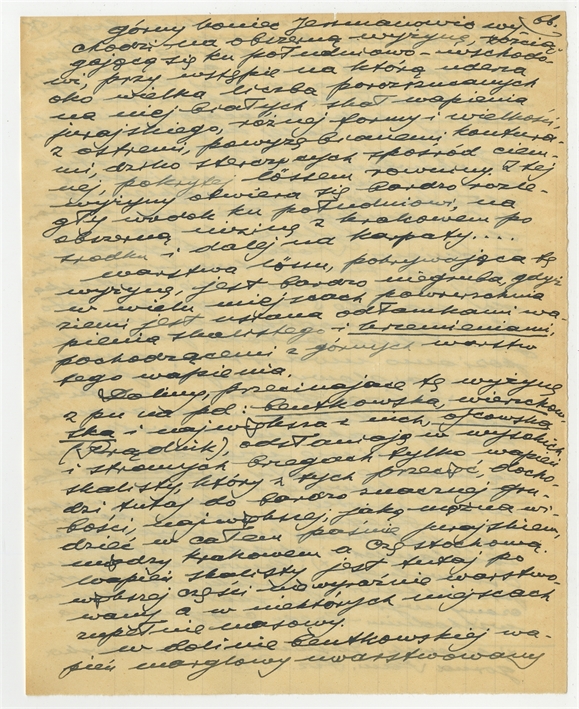 66.
górny koniec Jermanowic wy-
chodzi na obszerną wyżynę, rością-
gającą się ku południowo-wschodo-
wi, przy wstępie na którą uderza
oko wielka liczba porozrzucanych
na niej białych skał wapienia
jurajskiego, różnej formy i wielkości,
z ostremi, powyżebianemi kontura-
mi, dziko sterczących spośród ciem-
nej, pokrytej lössem równiny. Z tej
wyżyny otwiera się bardzo rozle-
gły widok ku południowi, na
obszerną nizinę z Krakowem po
środku i dalej na Karpaty....
Warstwa lössu, pokrywająca tę
wyżynę, jest bardzo niegruba, gdyż
w wielu miejscach powierzchnia
ziemi jest usiana odłamkami wa-
pienia skalistego i krzemieniami,
pochodzącemi z górnych warstw
tego wapienia.
Doliny, przecinające tę wyżynę
z pn na pd: będkowska, wierzchow-
ska i największa z nich, ojcowska
(Prądnik), odsłaniają w wysokich
i stromych brzegach tylko wapień
skalisty, który z tych przecięć docho-
dzi tutaj do bardzo znacznej gru-
bości, największej, jaką można wi-
dzieć w całem paśmie jurajskiem,
między Krakowem a Częstochową.
Wapień skalisty jest tutaj po
większej części niewyraźnie warstwo-
wany a w niektórych miejscach
zupełnie masowy.
W dolinie będkowskiej wa-
pień marglowy uwarstwowany